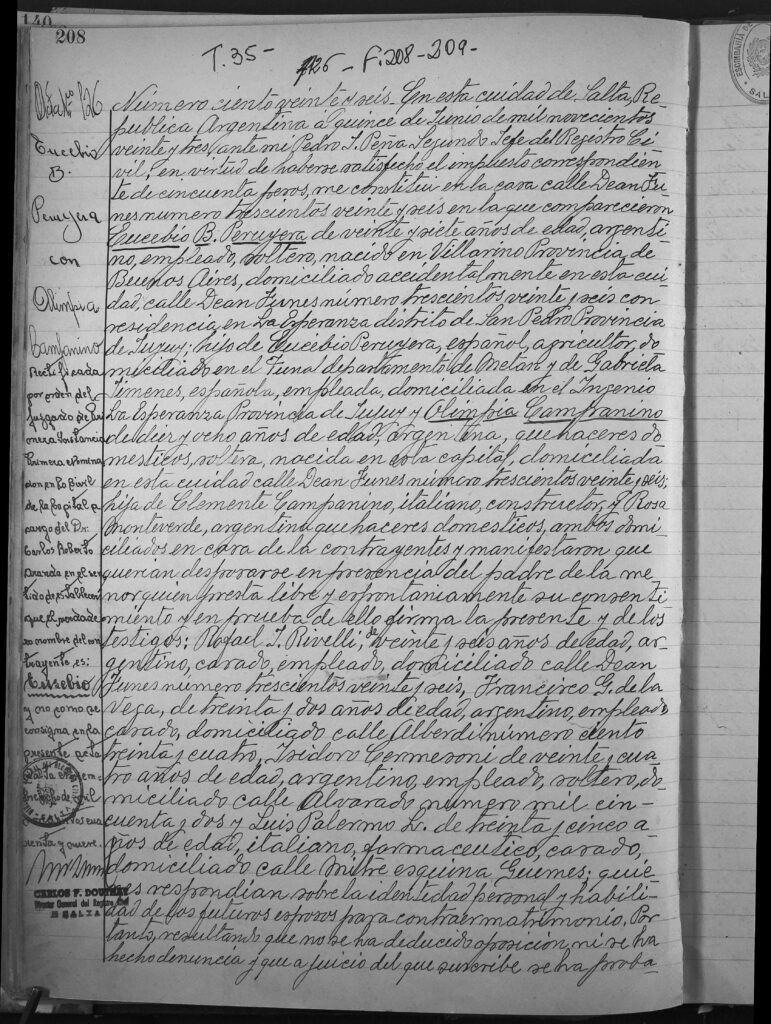 140
208
T. 35 -
126 - F. 208 - 209 -
Acta No 126
Eucebio
B.
Peruyera
con
Olimpia
Campanino
Rectificada
por orden del
Juzgado de Pri
mera Instancia
Primera Nomina
cion en lo Civil
de la Capital a
cargo del Dr.
Carlos Roberto
Aranda en el sen
tido de establecer
que el verdade
ro nombre del con
trayente es:
Eusebio
y no como se
consigna en la
presente acta
Salta
de mil
CARLOS F. DOUTHAT
Director General del Registro Civil
SALTA
Número ciento veinte y seis. En esta cuidad de Salta, Re-
publica Argentina a quince de Junio de mil novecientos
veinte y tres, ante mi Pedro I. Peña Segundo Jefe del Registro Ci-
vil; en virtud de haberse satisfecho el impuesto correspondien-
te de cincuenta pesos, me constitui en la casa calle Dean Fu-
nes numero trescientos veinte y seis en la que comparecieron
Eucebio B. Peruyera de veinte y siete años de edad, argenti-
no, empleado, soltero, nacido en Villarino Provincia de
Buenos Aires, domiciliado accidentalmente en esta cui-
dad, calle Dean Funes número trescientos veinte y seis con
residencia en La Esperanza distrito de San Pedro Provincia
de Jujuy; hijo de Eucebio Peruyera, español, agricultor, do-
miciliado en el Tunal departamento de Metan y de Gabriela
Jimenes, española, empleada, domiciliada en el Ingenio
La Esperanza Provincia de Jujuy y Olimpia Campanino
de diez y ocho años de edad, argentina, que haceres do-
mesticos, soltera, nacida en esta capital, domiciliada
en esta cuidad calle Dean Funes número trescientos veinte y seis;
hija de Clemente Campanino, italiano, constructor, y Rosa
Monteverde, argentina que haceres domesticos, ambos domi-
ciliados en casa de la contrayentes y manifestaron que
querian desposarse en presencia del padre de la me-
nor quien presta libre y espontaniamente su consenti-
miento y en prueba de ello firma la presente y de los
testigos: Rafael I. Rivelli, de veinte y seis años de edad, ar-
gentino, casado, empleado, domiciliado calle Dean
Funes número trescientos veinte y seis, Francisco G. de la
Vega, de treinta y dos años de edad, argentino, empleado
casado, domiciliado calle Alberdi número ciento
treinta y cuatro, Isidoro Cermesoni de veinte y cua-
tro años de edad, argentino, empleado, soltero, do-
miciliado calle Alvarado numero mil cin-
cuenta y dos y Luis Palermo L. de treinta y cinco a-
ños de edad, italiano, farmaceutico, casado,
domiciliado calle Mitre esquina Guemes; quie-
nes respondian sobre la identidad personal y habili-
dad de los futuros esposos para contraer matrimonio. Por
tanto, resultando que no se ha deducido oposición, ni se ha
hecho denuncia y que a juicio del que suscribe se ha proba-